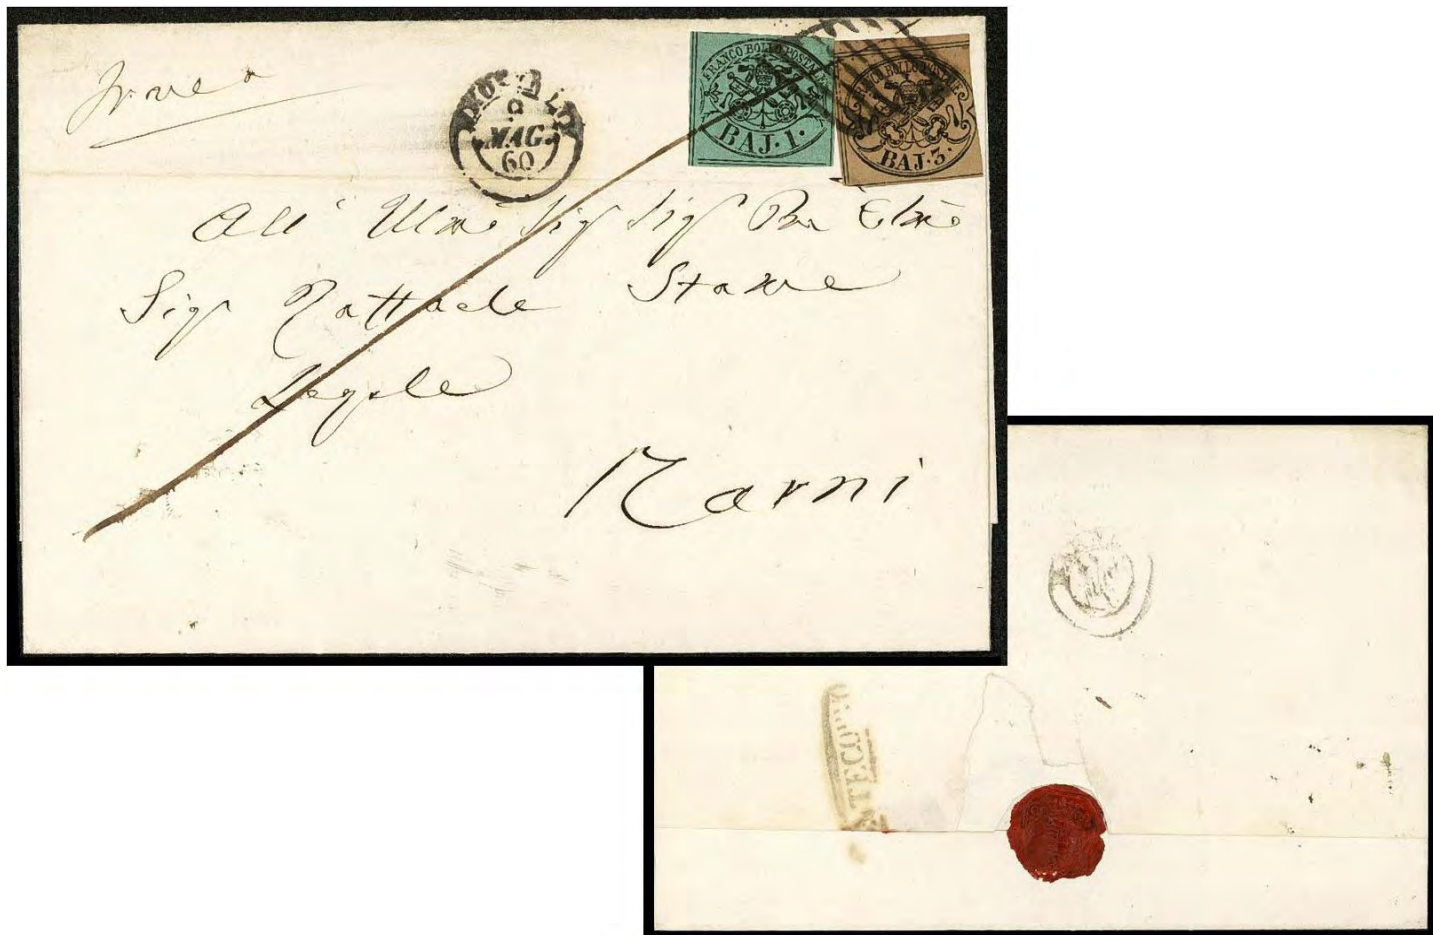 franca
8
MAG
60
FRANCO BOLLO POSTALE
BAJ. 1.
FRANCO BOLLO POSTALE
BAJ. 3.
All' Illmo Sig Sig Pne Colmo
Sig Raffaele
Legale
Narni
NTECO